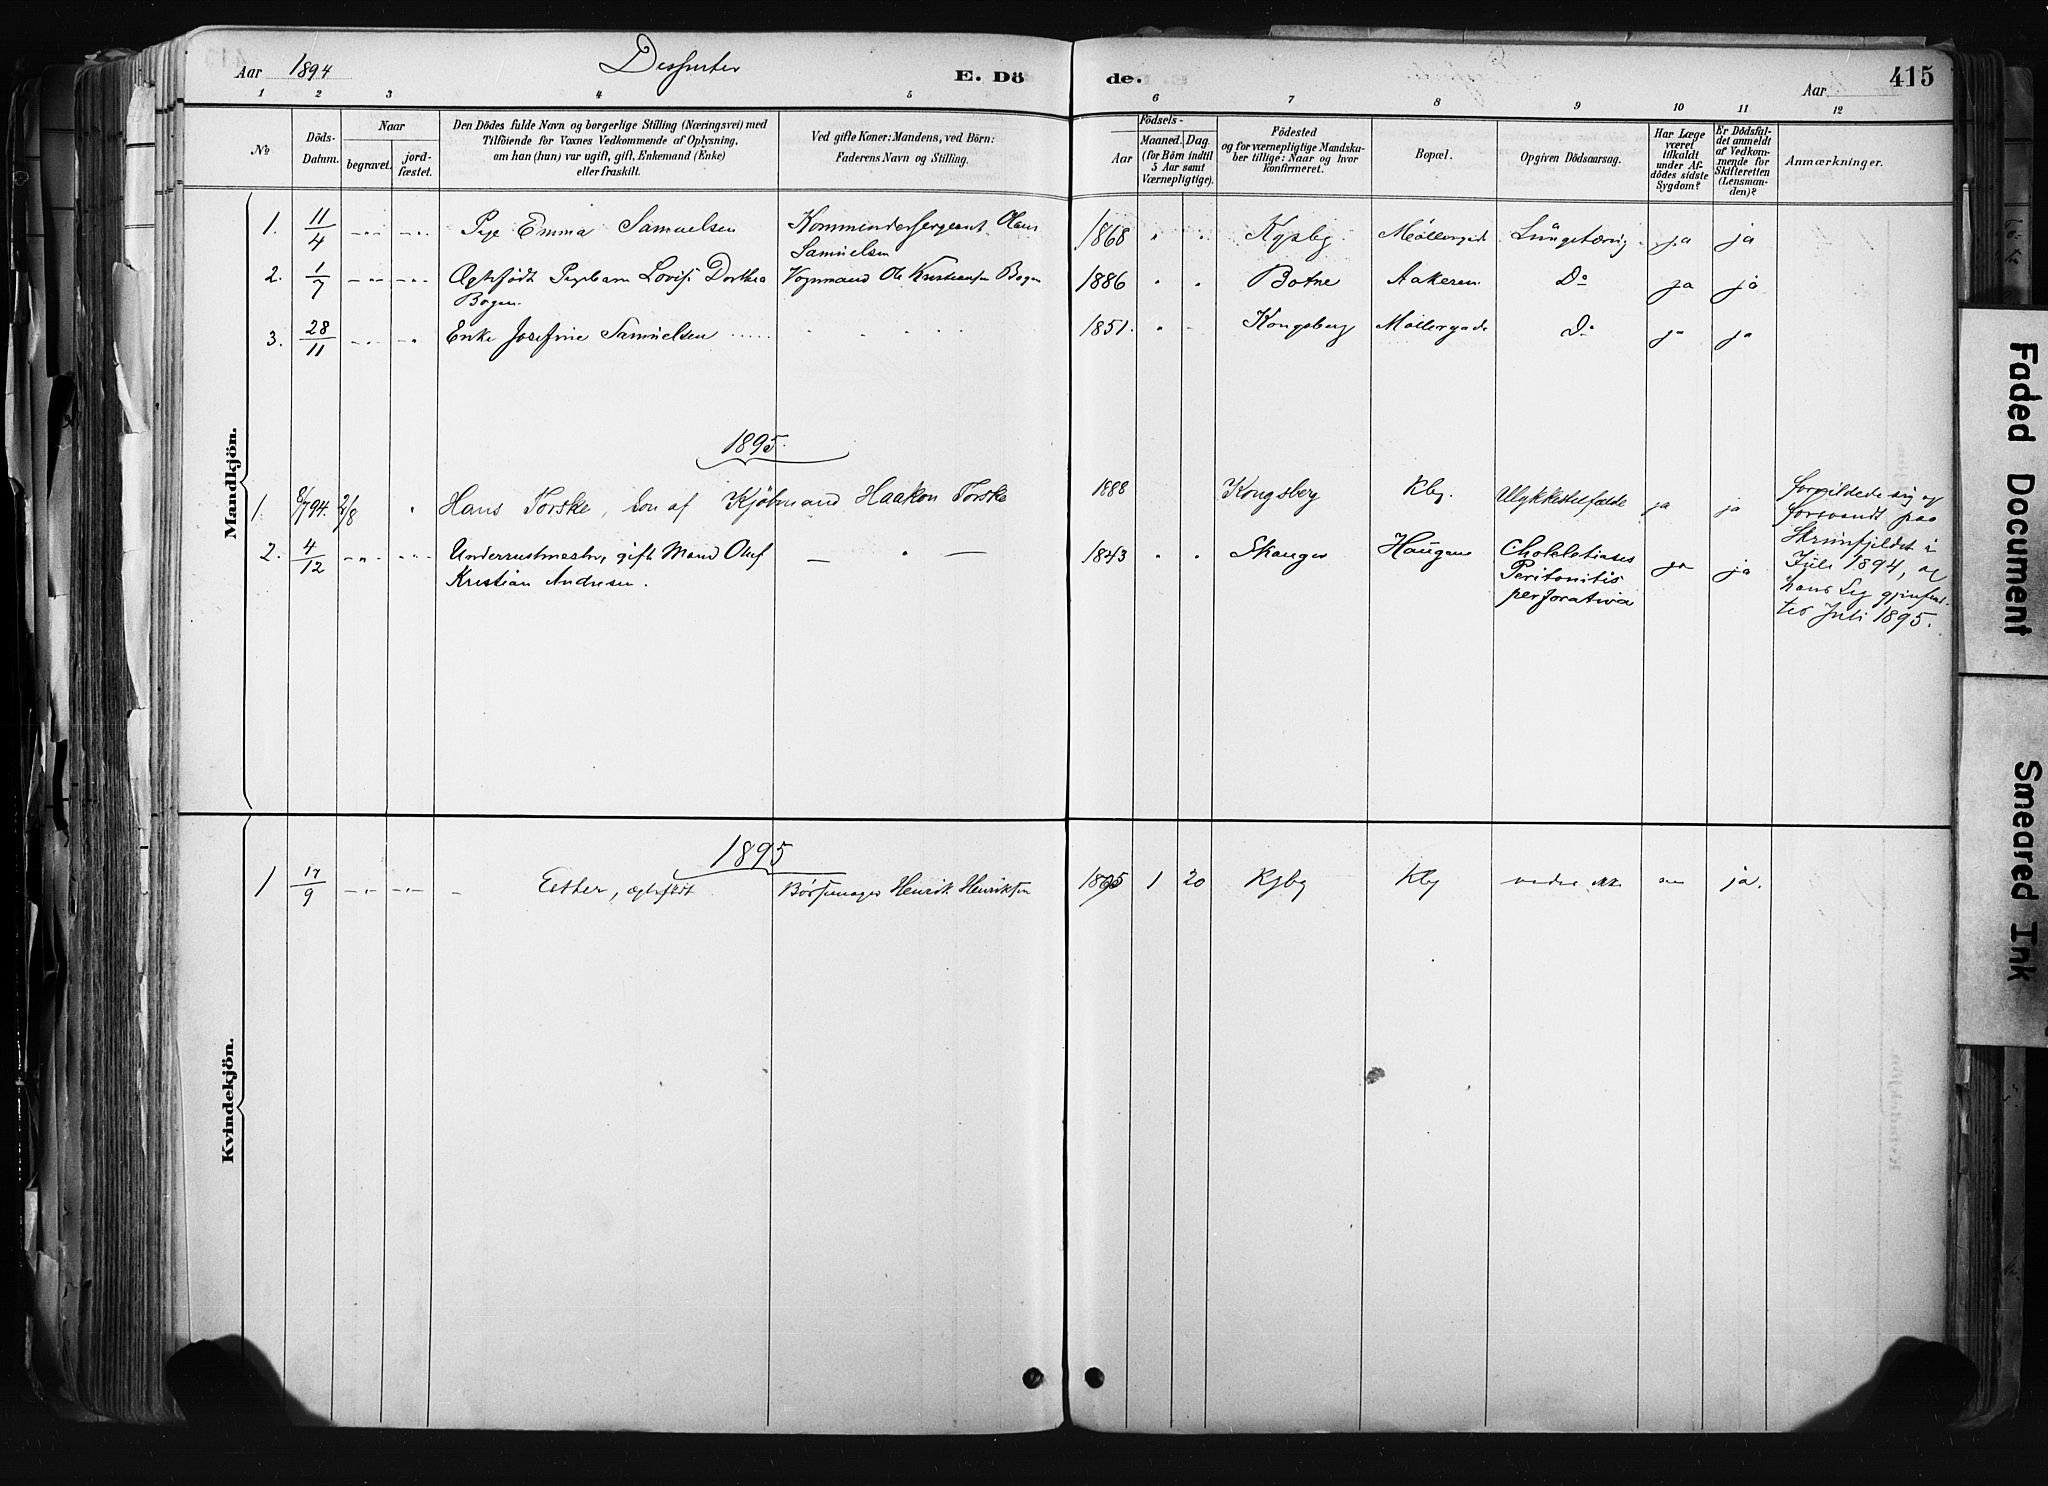 Aar 1894
E. Dö
de.
Aar
415
1 2 3 4 5 6 7 8 9 10 11 12
No
Döds-
Datum.
Naar
begravet.
jord-
fæstet.
Den Dödes fulde Navn og borgerlige Stilling (Næringsvei) med
Tilföiende for Voxnes Vedkommende af Oplysning,
om han (hun) var ugift, gift, Enkemand (Enke)
eller fraskilt.
Ved gifte Koner: Mandens, ved Börn:
Faderens Navn og Stilling.
Födsels-
Aar
Maaned.
Dag.
(for Börn indtil
5 Aar samt
Værnepligtige).
Födested
og for værnepligtige Mandska-
ber tillige: Naar og hvor
konfirmeret.
Bopæl.
Opgiven Dödsaarsag.
Har Læge
været
tilkaldt
under Af-
dödes sidste
Sygdom?
Er Dödsfal-
det anmeldt
af Vedkom-
mende for
Skifteretten
(Lensman-
den)?
Anmærkninger.
Mandkjön.
1. 11/4 Pige Emma Samuelsen Kommandersergeant Olaus 1868 Kgsbg. Möllergade Lungetæring ja ja
Samuelsen
2. 1/7 Ægtefødt Pigebarn Lovise Dorthea Vognmand Ole Kristiansen Bogen 1886 Botne Aakeren Do ja ja
Bogen
3. 28/11 Enke Josefine Samuelsen 1851. Kongsberg Möllergade Do ja ja
1895.
1. 8/7 94. 2/8 Hans Torske, Søn af Kjöbmand Haakon Torske 1888 Kongsberg Kbg. Ulykkestilfælde ja ja
forvildede sig og
forsvandt paa
Skrimfjeldet i
Juli 1894, og
hans Lig gjenfund-
tes Juli 1895.
2. 4/12 gift Mand Oluf 1843 Skauger Haugene Cholelitiases ja ja
Kristian Andresen. Peritonitis
perforativa
Kvindekjön.
1895
1 17/9 Esther, ægtefødt Børsemager Henrik Henriksen 1895 1 20 Kgbg Kbg ja.
Faded Document
Smeared Ink